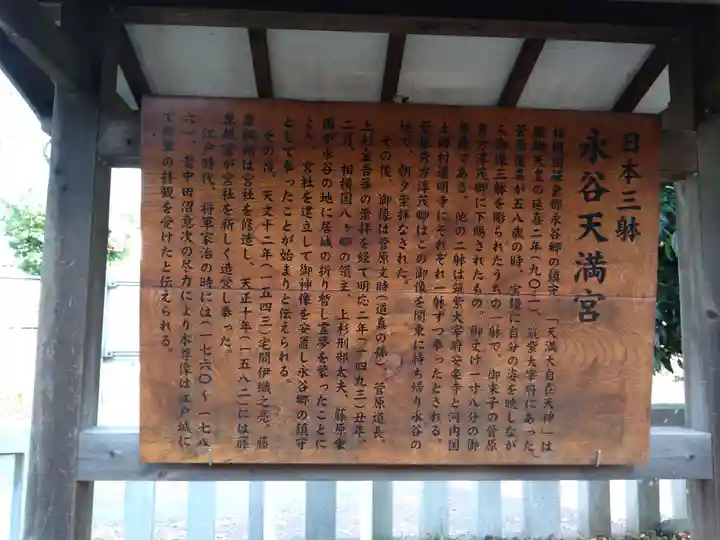 日本三躰
永谷天満宮
相模国鎌倉郡永谷郷の鎮守「天満大自在天神」は
醍醐天皇の延喜二年(九〇二)、筑紫大宰府にあった
菅原道真が五八歳の時、宝鏡に自分の姿を映しなが
ら御像三躰を彫られたうちの一躰で、御末子の菅原
貴方淳茂卿に下賜されたもの。御丈け一寸八分の御
座像である。他の二躰は筑紫大宰府安楽寺と河内国
土師村道明寺にそれぞれ一躰ずつ奉ったとされる。
菅原貴方淳茂卿はこの御像を関東に持ち帰り永谷の
地で、朝夕崇拝なされた。
その後、御像は菅原文時(道真の孫)、菅原道長、
上杉金吾等の崇拝を経て明応二年(一四九三)丑年、
二月、相模国八ヶ郷の領主、上杉刑部太夫、藤原乗
国が永谷の地に居城の折り暫し霊夢を蒙ったことに
より、宮社を建立して御神像を安置し永谷郷の鎮守
として奉ったことが始まりと伝えられる。
その後、天文十二年(一五四三)宅間伊織之亮、藤
原規綱は宮社を修造し、天正十年(一五八二)には藤
原規富が宮社を新しく造営し奉った。
江戸時代、将軍家治の時には(一七六〇〜一七八
六)、老中田沼意次の尽力により永尊像は江戸城に
て将軍の拝観を受けたと伝えられる。